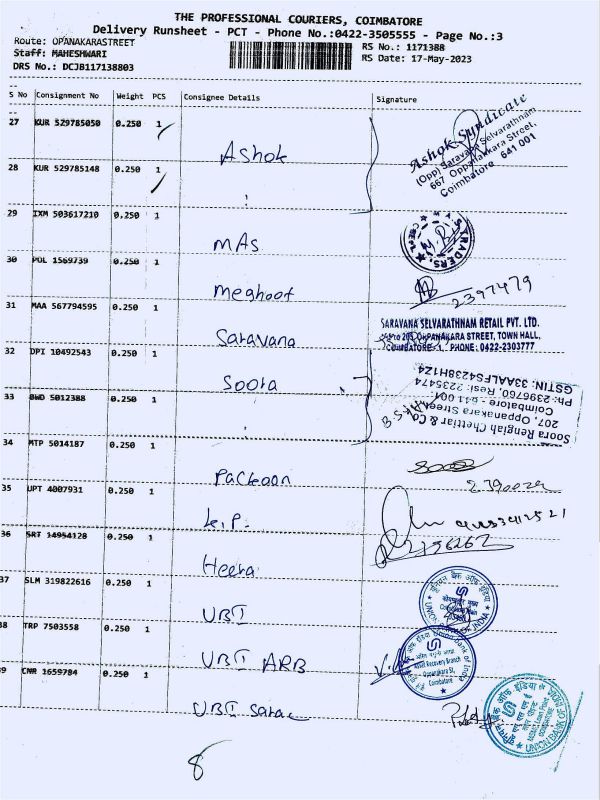 THE PROFESSIONAL COURIERS, COIMBATORE
Delivery Runsheet - PCT - Phone No.:0422-3505555 - Page No.:3
Route: OPANAKARASTREET
RS No.: 1171388
Staff: MAHESHWARI
RS Date: 17-May-2023
DRS No.: DCJB117138803
S No Consignment No Weight PCS Consignee Details Signature
27 KUR 529785050 0.250 1 Ashok
Ashok Syndicate
(Opp) Saravana Selvarathnam
667 Oppanakkara Street,
Coimbatore 641 001
28 KUR 529785148 0.250 1 "
29 IXM 503617210 0.250 1 MAS
TRADERS
30 POL 1569739 0.250 1 Meghoot 2397479
31 MAA 567794595 0.250 1 Saravana
SARAVANA SELVARATHNAM RETAIL PVT. LTD.
OPPANAKARA STREET, TOWN HALL,
COIMBATORE - 1. PHONE: 0422-2303777
32 DPI 10492543 0.250 1 Soora
Soora Rengiah Chettiar & Co
207, Oppanakara Street
Coimbatore - 641 001.
Ph: 2396760, Resi: 2235474
GSTIN: 33AALFS4238H1Z4
33 BWD 5012388 0.250 1 "
34 MTP 5014187 0.250 1
35 UPT 4007931 0.250 1 K.P.
36 SRT 14954128 0.250 1 Heera 2396262
37 SLM 319822616 0.250 1 UBI
यूनियन बैंक ऑफ इंडिया
UNION BANK OF INDIA
38 TRP 7503558 0.250 1 UBI ARB
Union Bank of India
Asset Recovery Branch
Oppanakara St,
Coimbatore
39 CNR 1659784 0.250 1 UBI Sarac
यूनियन बैंक ऑफ इंडिया
UNION BANK OF
8